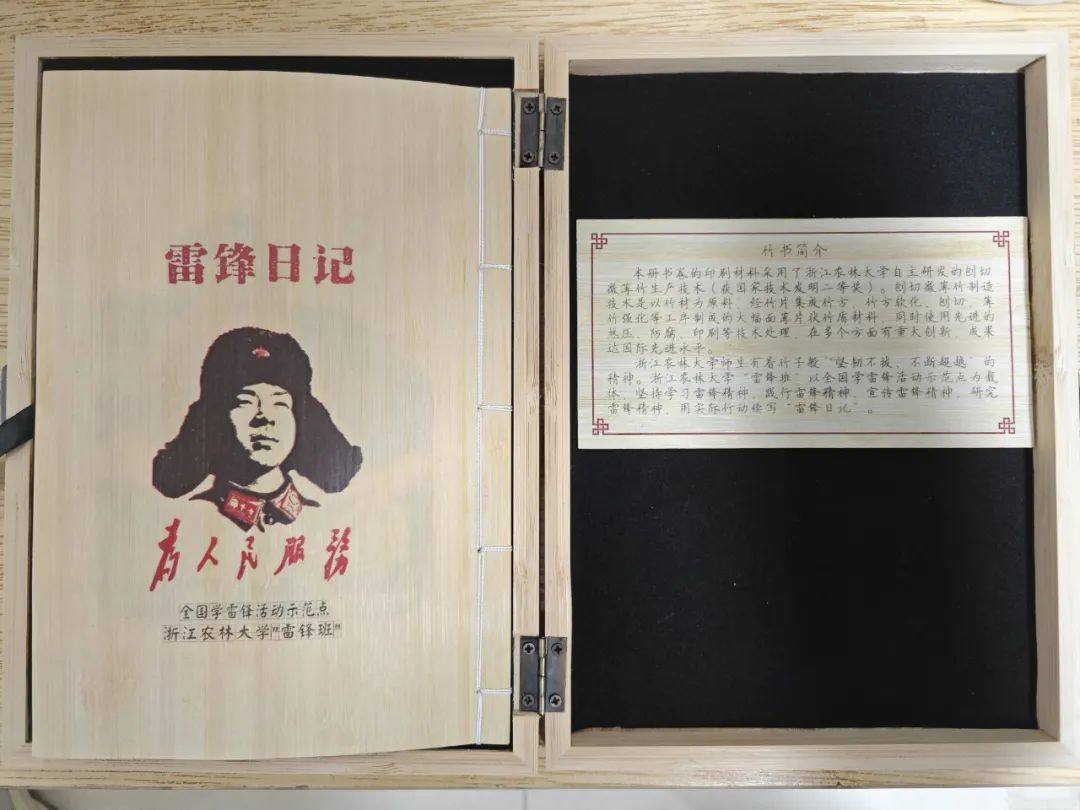 雷锋日记
為人民服務
全国学雷锋活动示范点
浙江农林大学"雷锋班"
竹书简介
本册书卷的印刷材料采用了浙江农林大学自主研发的刨切
微薄竹生产技术（获国家技术发明二等奖）。刨切微薄竹制造
技术是以竹材为原料，经竹片集成竹方、竹方软化、刨切、薄
竹强化等工序制成的大幅面薄片状竹质材料，同时使用先进的
热压、防腐、印刷等技术处理，在多个方面有重大创新，成果
达国际先进水平。
浙江农林大学师生有着竹子般“坚韧不拔、不断超越”的
精神。浙江农林大学“雷锋班”以全国学雷锋活动示范点为载
体，坚持学习雷锋精神、践行雷锋精神、宣传雷锋精神、研究
雷锋精神，用实际行动续写“雷锋日记”。